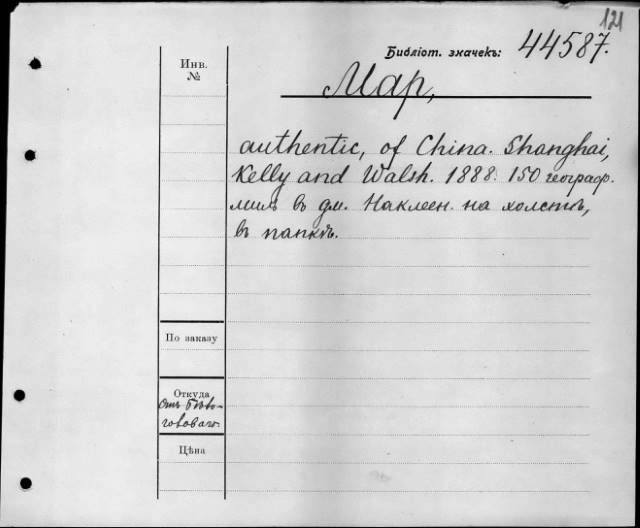 121
Библіот. значекъ: 44587.
Инв.
№
Map,
authentic, of China. Shanghai,
Kelly and Walsh. 1888. 150 географ.
миль въ дм. Наклеен. на холстѣ,
въ папкѣ.
По заказу
Откуда
Отъ
Цѣна